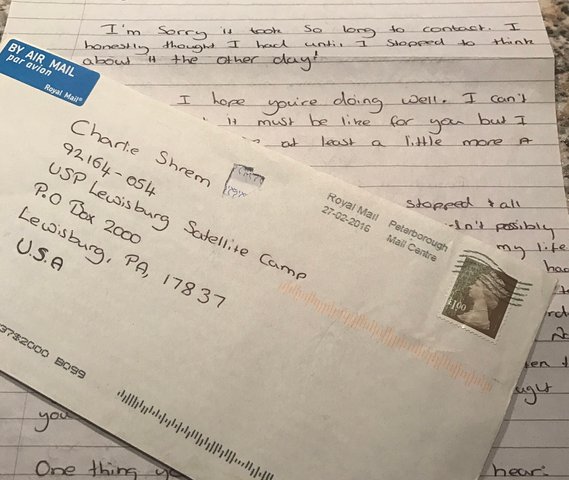 I'm Sorry it took so long to contact. I
honestly thought I had until I stopped to think
about it the other day!
I hope you're doing well. I can't
it must be like for you but I
at least a little more
stopped & all
possibly
my life
BY AIR MAIL
par avion
Royal Mail®
Charlie Shrem
92164-054
USP Lewisburg Satellite Camp
P.O Box 2000
Lewisburg, PA, 17837
U.S.A
Royal Mail Peterborough
27-02-2016 Mail Centre
£1.00
you
One thing
hear: